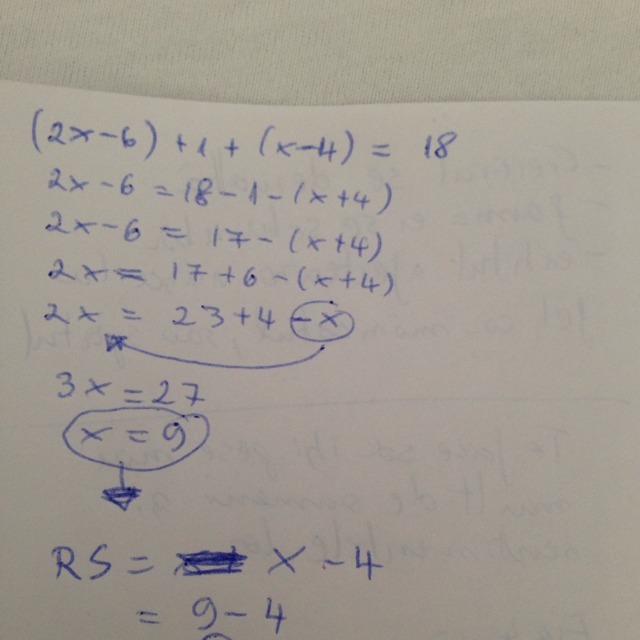 (2x-6) + 1 + (x-4) = 18
2x-6 = 18-1-(x+4)
2x-6 = 17-(x+4)
2x = 17+6-(x+4)
2x = 23+4-x
3x = 27
x = 9
RS = x - 4
= 9 - 4